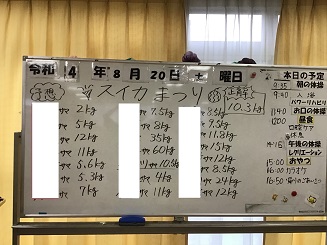 令和 4 年 8 月 20 日 土 曜日
本日の予定
予想 スイカまつり 正解 10.3kg
9:35 朝の体操
9:40 入浴
パワーリハビリ
11:40 お口の体操
12:00 昼食
口腔ケア
休息
14:15 午後の体操
レクリエーション
15:00 おやつ
16:00 カラオケ
2kg 7.5kg 3.5kg
8kg
12kg 8kg
11kg 35kg 15kg
11kg 60kg 12kg
5.6kg 10.5kg 8.5kg
5.3kg 4kg 24kg
7kg 11kg 12kg